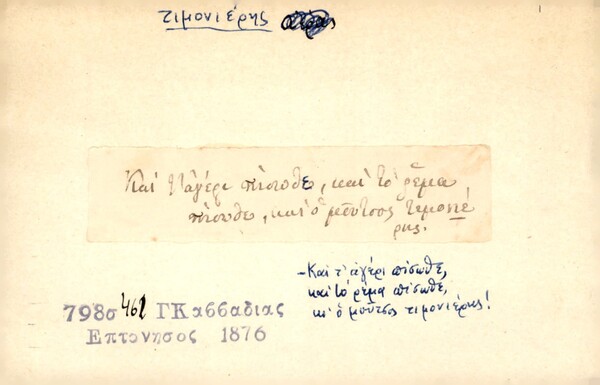 τιμονιέρης
Καὶ τ' ἀγέρι πίσουθε, καὶ τὸ ῥέμα
πίσουθε, καὶ ὁ μοῦτσος τεμονιέ
ρης.
- Καὶ τ' ἀγέρι πίσωθε,
καὶ τὸ ρέμα πίσωθε,
κι' ὁ μοῦτσος τιμονιέρης!
798σ 462 ΓΚασσαδιας
Επτονησος 1876